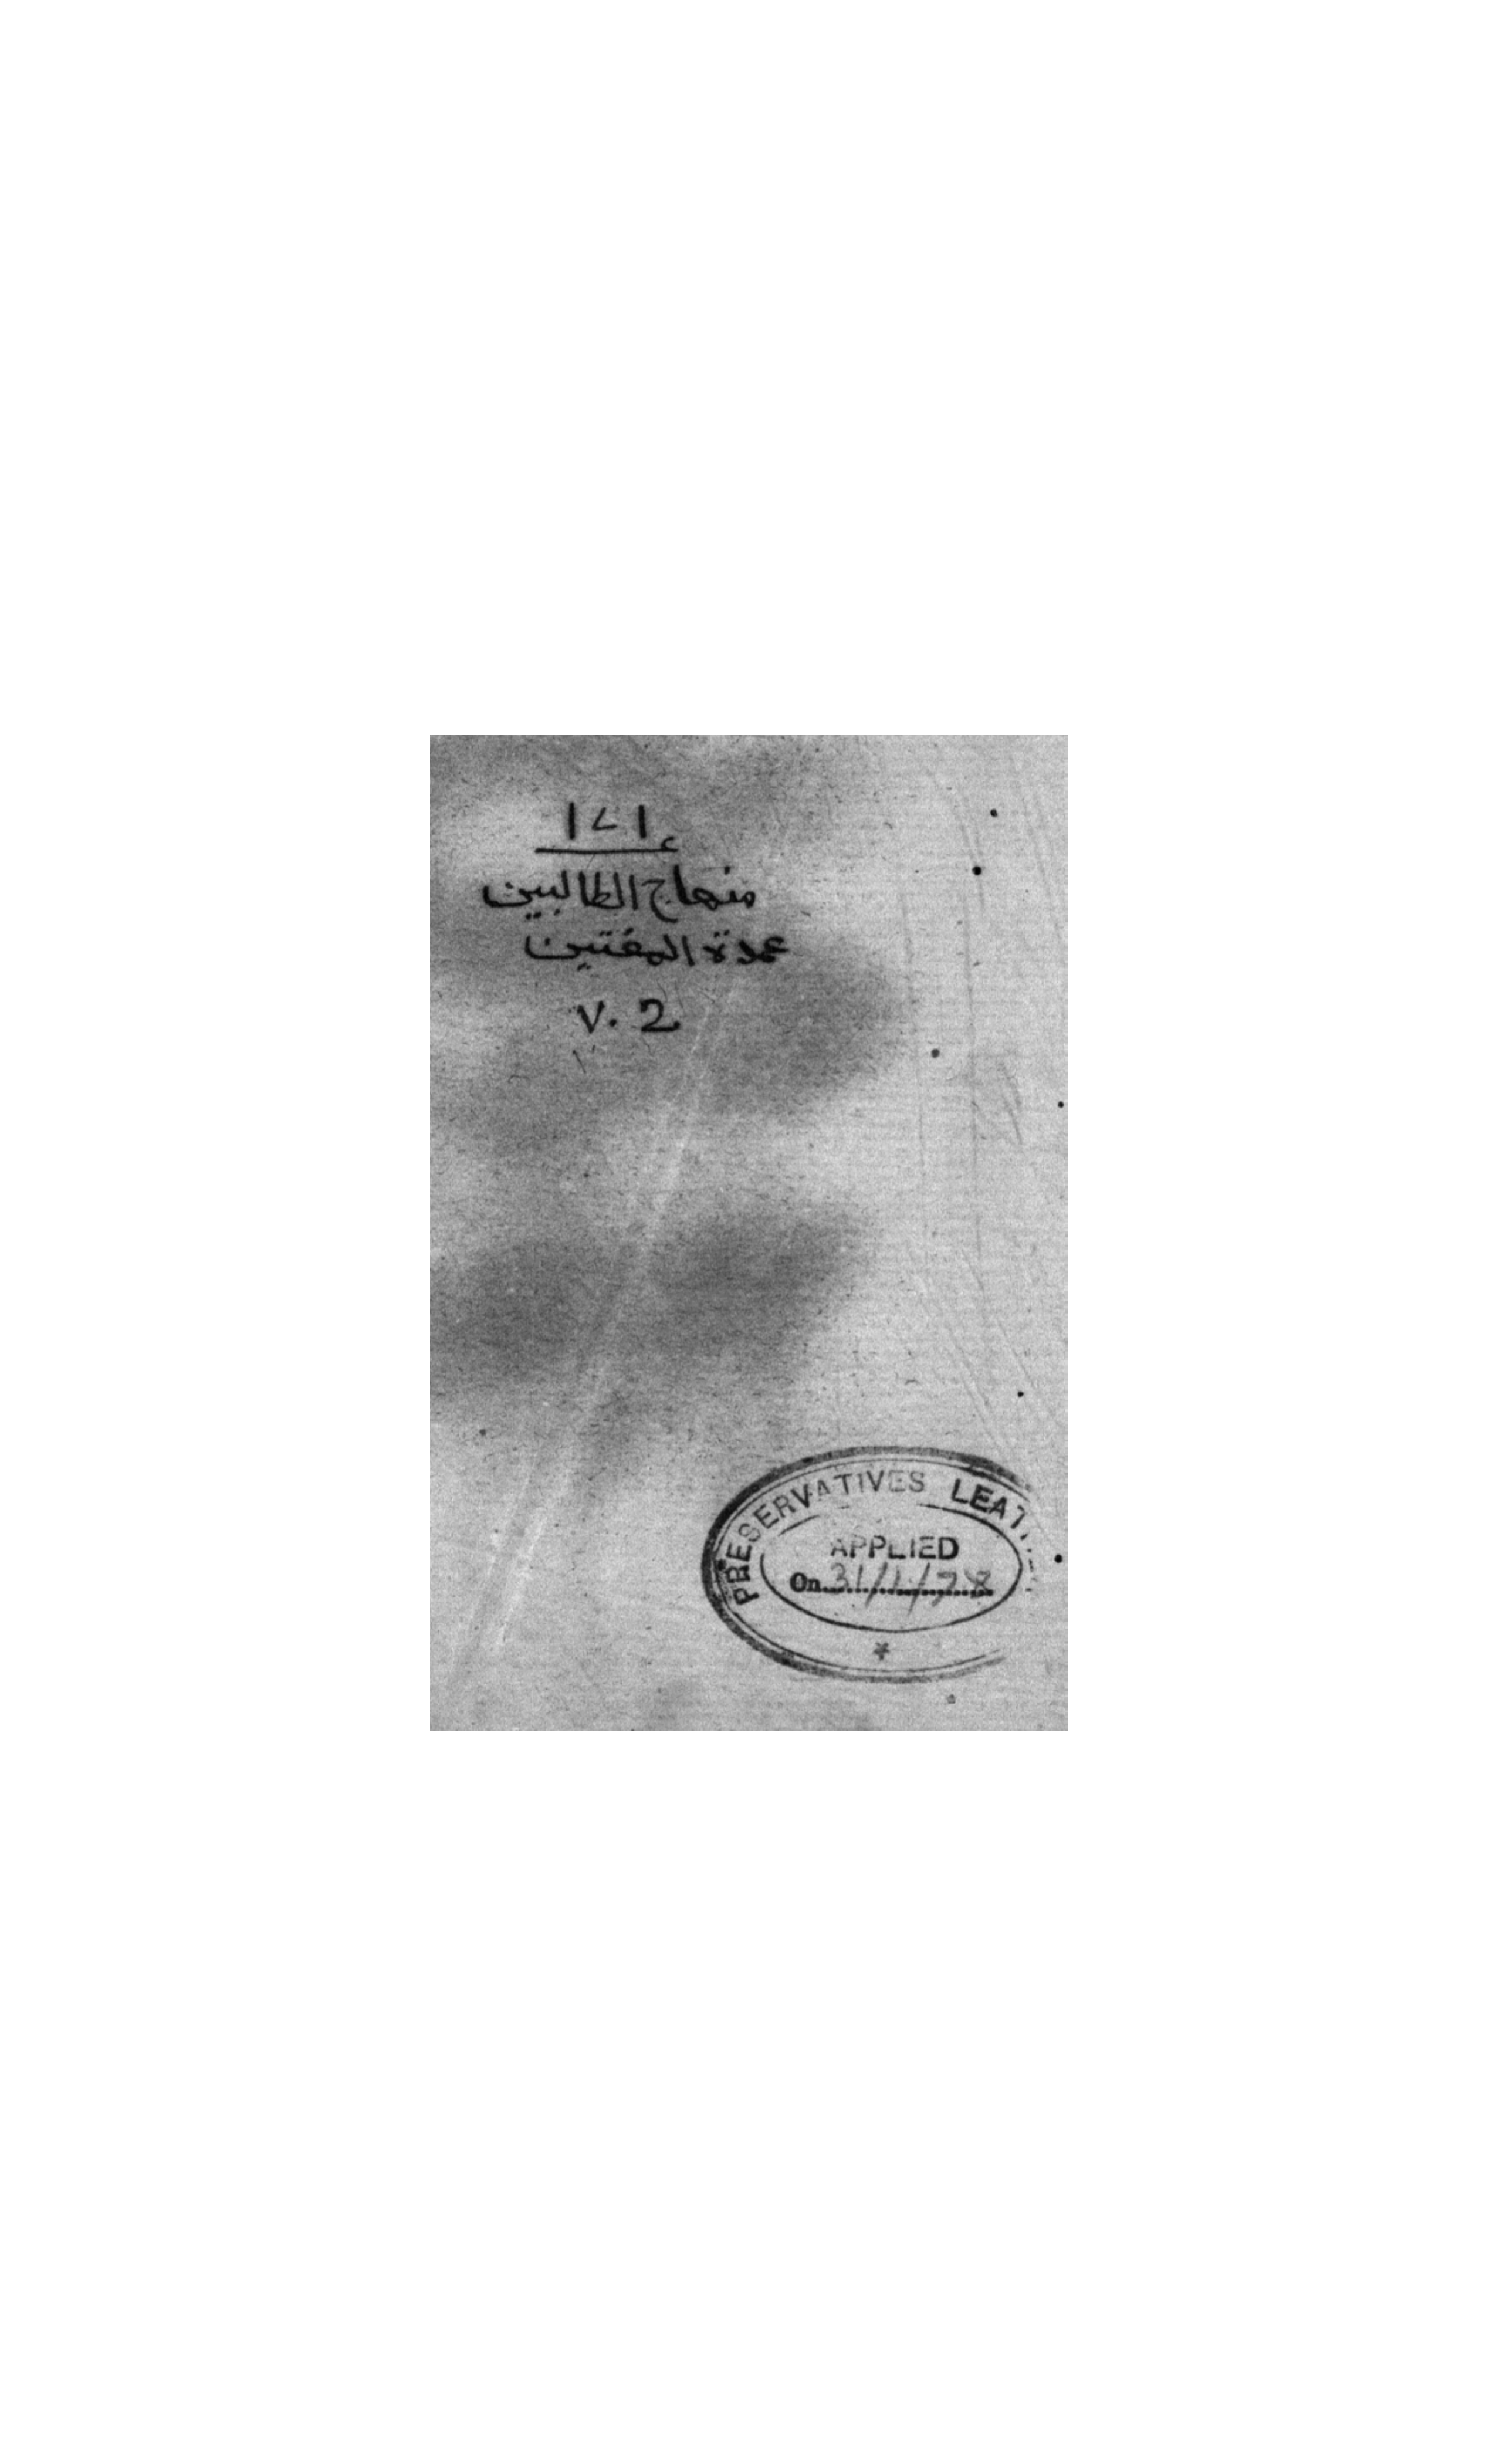 منهاج الطالبين
عمدة المفتين
v. 2
PRESERVATIVES
APPLIED
On 31/1/78